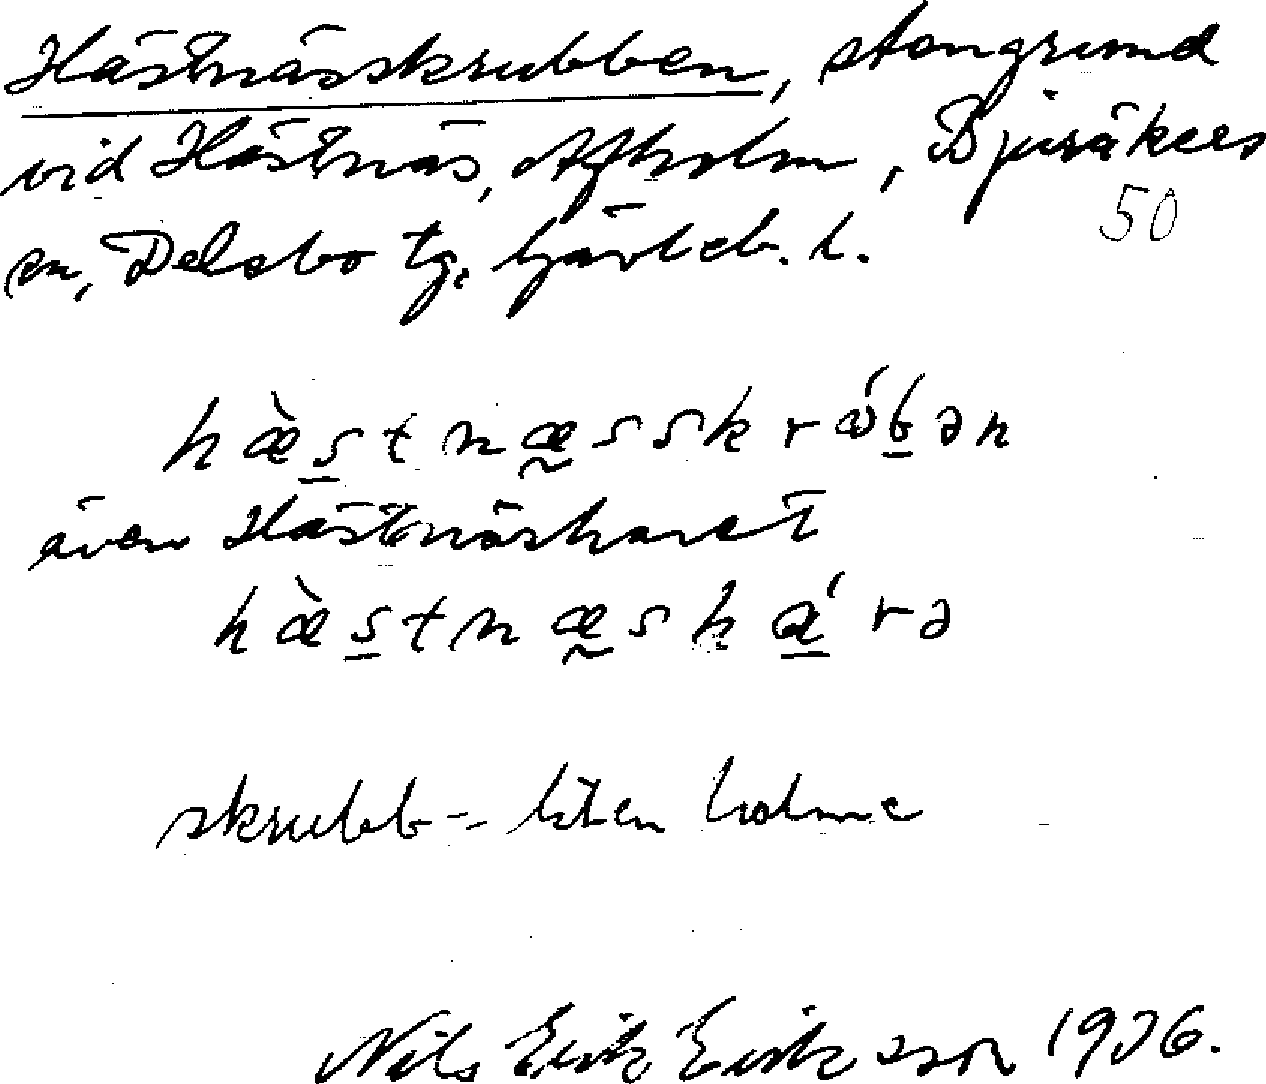 Hästnässkrubben, stengrund
vid Hästnäs, Avholm, Bjuråkers
50
sn, Delsbo tg, Gävleb. l.
hæ̀s̲tnæ̰sskrǻb̲ən
även Hästnäsharet
hæ̀s̲tnæ̰shá̲rə
skrubb - liten holme
Nils Erik Eriksson 1936.